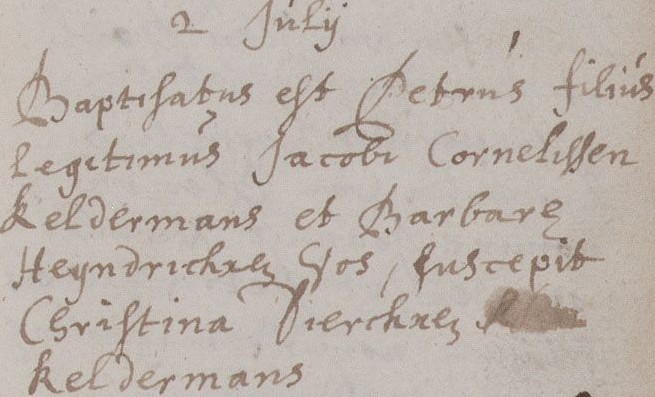 2 Julij
Baptisatus est Petrus filius
legitimus Jacobi Cornelissen
keldermans et Barbare
Heyndrickxen Vos, suscepit
Christina Dierckxen
keldermans